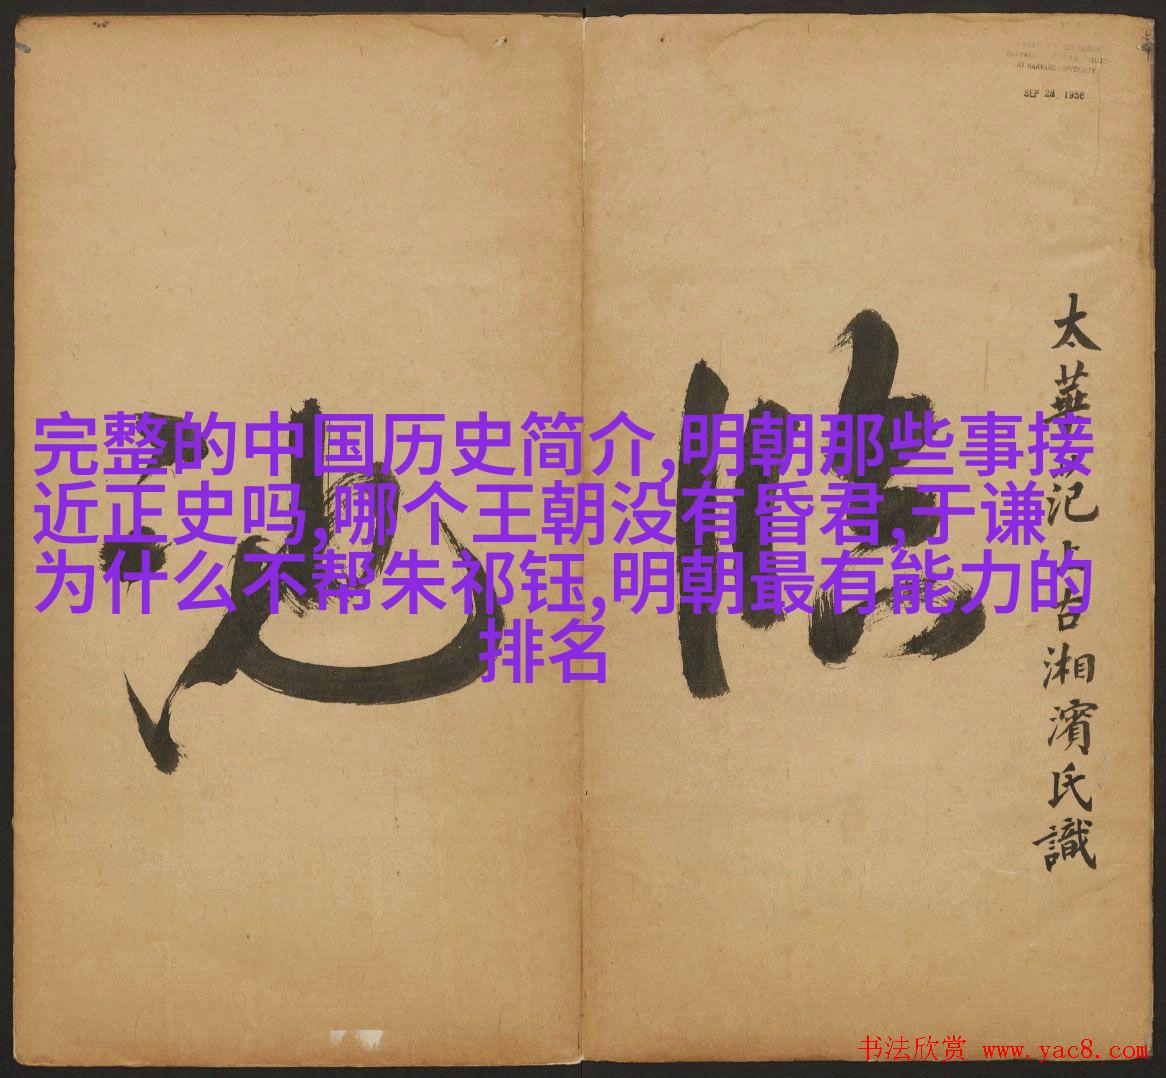 AT HARVARD UNIVERSITY
SEP 28 1956
完整的中国历史简介,明朝那些事接
近正史吗,哪个王朝没有昏君,于谦
为什么不帮朱祁钰,明朝最有能力的
排名
湘濱氏識
书法欣赏 www.yac8.com